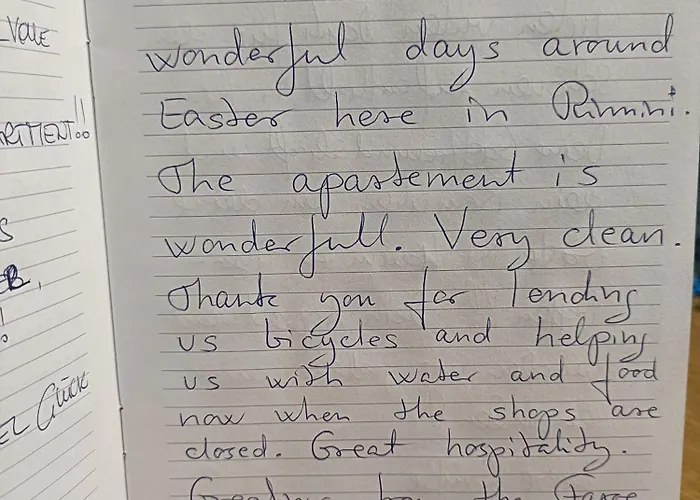 VOLE
ARTMENT!!
EL GLÜCK
wonderful days around
Easter here in Rimini.
The apartement is
wonderfull. Very clean.
Thank you for lending
us bicycles and helping
us with water and food
now when the shops are
closed. Great hospitality.
the